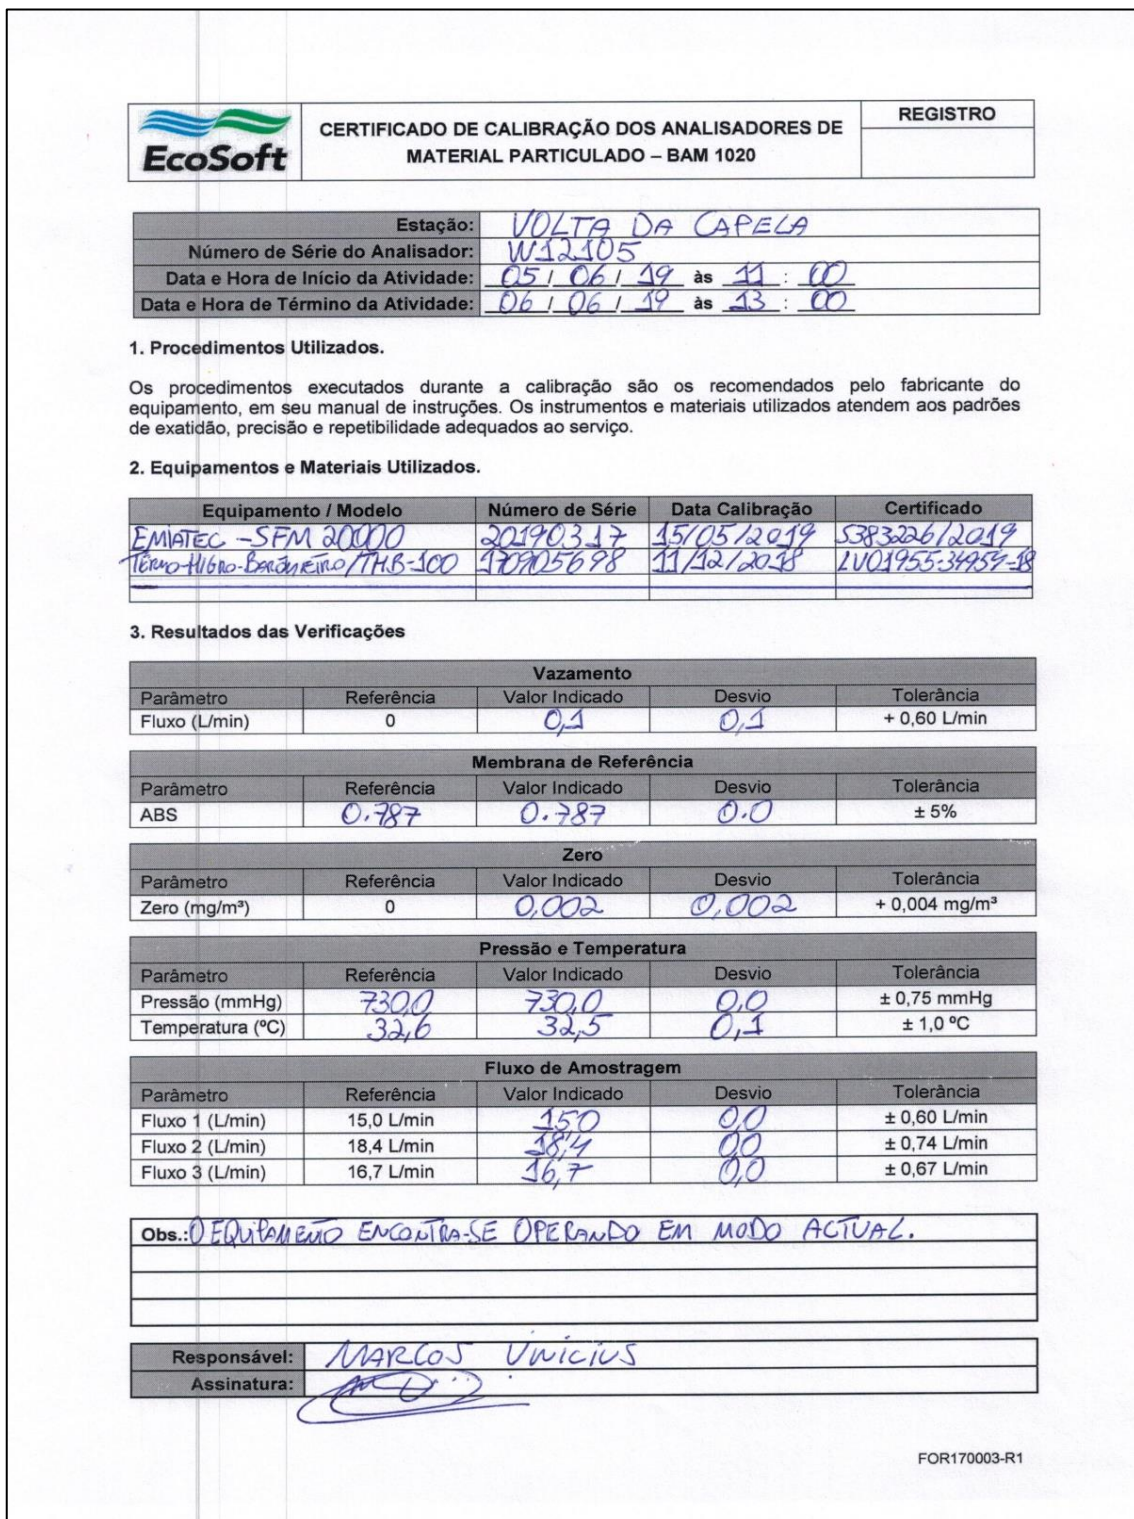 EcoSoft
CERTIFICADO DE CALIBRAÇÃO DOS ANALISADORES DE
MATERIAL PARTICULADO – BAM 1020
REGISTRO
Estação: VOLTA DA CAPELA
Número de Série do Analisador: W12105
Data e Hora de Início da Atividade: 05 / 06 / 19 às 11 : 00
Data e Hora de Término da Atividade: 06 / 06 / 19 às 13 : 00
1. Procedimentos Utilizados.
Os procedimentos executados durante a calibração são os recomendados pelo fabricante do
equipamento, em seu manual de instruções. Os instrumentos e materiais utilizados atendem aos padrões
de exatidão, precisão e repetibilidade adequados ao serviço.
2. Equipamentos e Materiais Utilizados.
Equipamento / Modelo Número de Série Data Calibração Certificado
EMIATEC - SFM 20000 20190317 15/05/2019 S383226/2019
TERMO-HIGRO-BARÔMETRO/THB-100 170905698 11/12/2018
3. Resultados das Verificações
Vazamento
Parâmetro Referência Valor Indicado Desvio Tolerância
Fluxo (L/min) 0 0,1 0,1 + 0,60 L/min
Membrana de Referência
Parâmetro Referência Valor Indicado Desvio Tolerância
ABS 0.787 0.787 0.0 ± 5%
Zero
Parâmetro Referência Valor Indicado Desvio Tolerância
Zero (mg/m³) 0 0,002 0,002 + 0,004 mg/m³
Pressão e Temperatura
Parâmetro Referência Valor Indicado Desvio Tolerância
Pressão (mmHg) 730,0 730,0 0,0 ± 0,75 mmHg
Temperatura (ºC) 32,6 32,5 0,1 ± 1,0 ºC
Fluxo de Amostragem
Parâmetro Referência Valor Indicado Desvio Tolerância
Fluxo 1 (L/min) 15,0 L/min 15,0 0,0 ± 0,60 L/min
Fluxo 2 (L/min) 18,4 L/min 18,4 0,0 ± 0,74 L/min
Fluxo 3 (L/min) 16,7 L/min 16,7 0,0 ± 0,67 L/min
Obs.: O EQUIPAMENTO ENCONTRA-SE OPERANDO EM MODO ACTUAL.
Responsável: MARCOS VINICIUS
Assinatura:
FOR170003-R1